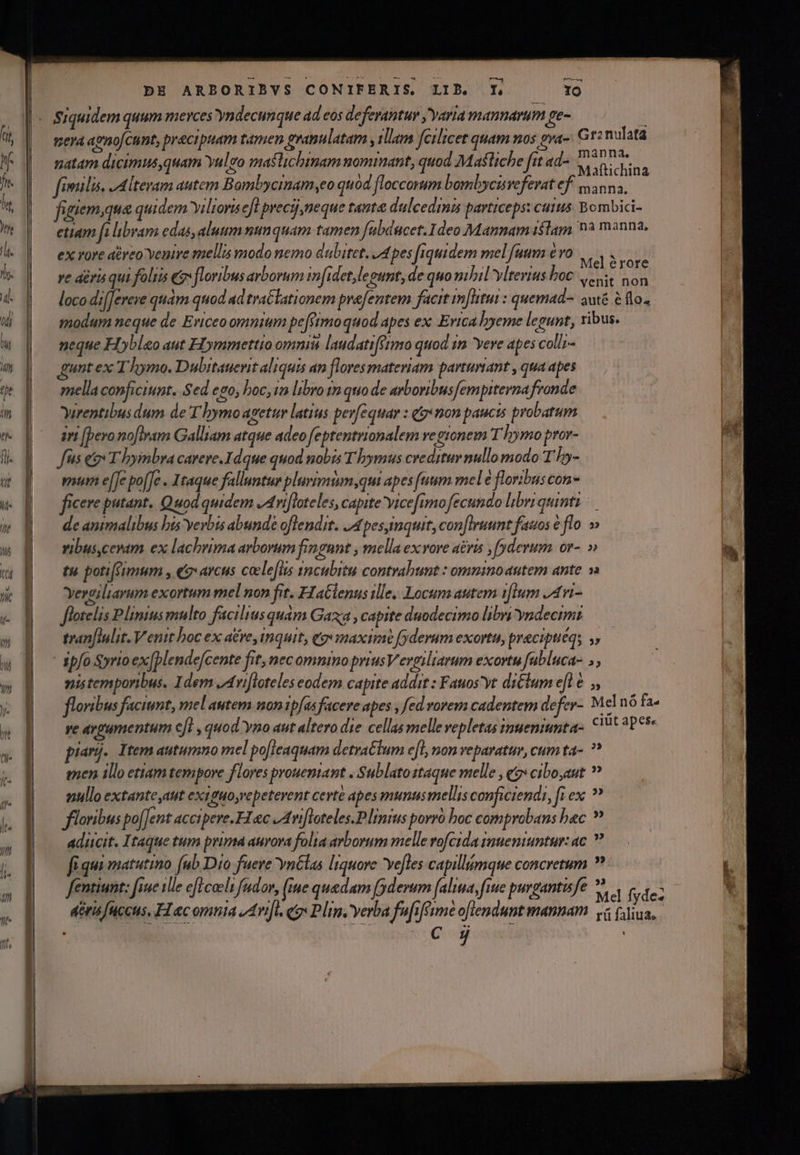 DE ARBORIBVS CONIFERIS, LIB. I. 10
Siquidem quum merces vndecunque ad eos deferantur, varia mannarum ge-
nera agnoscunt, præcipuam tamen granulatam, illam scilicet quam nos gra-
natam dicimus, quam vulgo mastichinam nominant, quod Mastiche sit ad-
similis. Alteram autem Bombycinam, eo quòd floccorum bombycis referat ef-
figiem, quæ quidem vilioris est precij, neque tantæ dulcedinis particeps: cuius
etiam si libram edas, aluum nunquam tamen subducet. Ideo Mannam istam
ex rore aëreo venire mellis modo nemo dubitet. Apes siquidem mel suum è ro
re aëris qui foliis & floribus arborum insidet, legunt, de quo nihil vlterius hoc
loco disserere quàm quod ad tractationem præsentem facit institui: quemad-
modum neque de Ericeo omnium pessimo quod apes ex Erica hyeme legunt,
neque Hyblæo aut Hymmettio omniũ laudatissimo quod in vere apes colli-
gunt ex Thymo. Dubitauerit aliquis an flores materiam parturiant, qua apes
mella conficiunt. Sed ego, hoc, in libro in quo de arboribus sempiterna fronde
virentibus dum de Thymo agetur latius persequar: & non paucis probatum
iri spero nostram Galliam atque adeo septentrionalem regionem Thymo pror-
sus & Thymbra carere. Idque quod nobis Thymus creditur nullo modo Thy-
mum esse posse. Itaque falluntur plurimùm, qui apes suum mel è floribus con-
ficere putant. Quod quidem Aristoteles, capite vicesimo secundo libri quinti
de animalibus his verbis abundè ostendit. Apes, inquit, construunt fauos è flo »
ribus, ceram ex lachrima arborum fingunt, mella ex rore aëris, syderum or- »
tu potissimum, & arcus cœlestis incubitu contrahunt: omnino autem ante »
Vergiliarum exortum mel non fit. Hactenus ille. Locum autem istum Ari-
stotelis Plinius multo facilius quàm Gaza, capite duodecimo libri vndecimi
transtulit. Venit hoc ex aëre, inquit, & maximè syderum exortu, præcipuéq; ,,
ipso Syrio exsplendescente fit, nec omnino prius Vergiliarum exortu subluca- ,,
nis temporibus. Idem Aristoteles eodem capite addit: Fauos vt dictum est è ,,
floribus faciunt, mel autem non ipsas facere apes, sed rorem cadentem defer-
re argumentum est, quod vno aut altero die cellas melle repletas inueniunta-
piarij. Item autumno mel posteaquam detractum est, non reparatur, cum ta- ”
men illo etiam tempore flores proueniant. Sublato itaque melle, & cibo, aut ”
nullo extante, aut exiguo, repeterent certè apes munus mellis conficiendi, si ex ”
floribus possent accipere. Hæc Aristoteles. Plinius porrò hoc comprobans hæc ”
adiicit. Itaque tum prima aurora folia arborum melle roscida inueniuntur: ac ”
si qui matutino sub Dio fuere vnctas liquore vestes capillúmque concretum ”
sentiunt: siue ille est cœli sudor, siue quædam syderum saliua, siue purgantis se ”
aëris succus. Hæc omnia Arist. & Plin. verba fusissimè ostendunt mannam
C ij
Granulata
manna.
Mastichina
manna.
Bombici-
na manna.
Mel è rore
venit non
autẽ è flo.
ribus.
Mel nõ fa-
ciũt apes.
Mel syde-
rũ saliua.